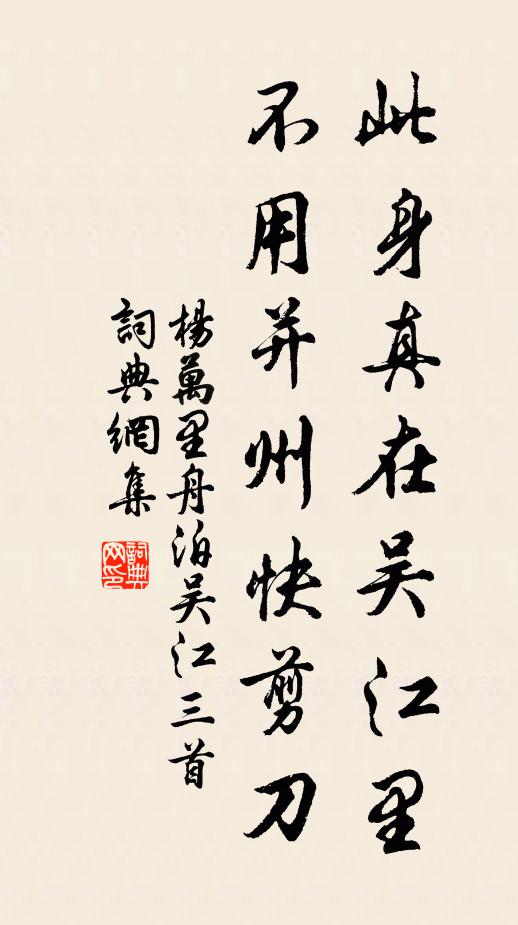 此身真在吴江里
不用并州快剪刀
楊萬里舟泊吴江三首
詞典網集
詞典網印